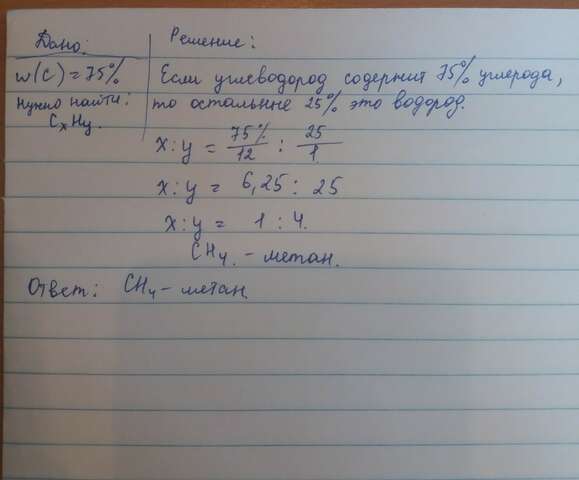 Дано:
w(C) = 75%
Нужно найти:
CxHy.
Решение:
Если углеводород содержит 75% углерода,
то остальные 25% это водород.
x:y = 75%/12 : 25/1
x:y = 6,25 : 25
x:y = 1 : 4.
CH4. - метан.
Ответ: CH4 - метан.